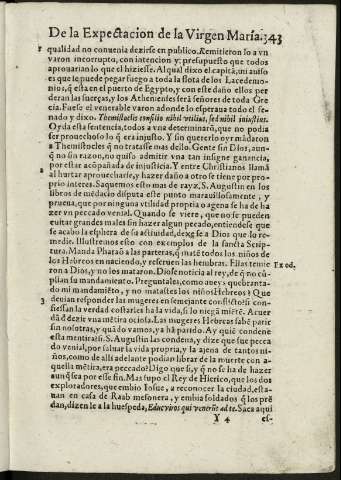 De la Expectacion de la Virgen María. 343
1 qualidad no conuenia dezirse en publico. Remitieron lo a vn
varon incorrupto, con intencion y presupuesto que todos
aprouarian lo que el hiziesse. Al qual dixo el capitã, mi auiso
es que le puede pegar fuego a toda la flota de los Lacedemo-
nios, q̃ esta en el puerto de Egypto, y con este daño ellos per
deran las fuerças, y los Athenienses serà señores de toda Gre
cia. Fuese el venerable varon adonde lo esperaua todo el se-
nado y dixo. Themistoclis consilio nihil vtilius, sed nihil iniustius.
Oyda esta sentencia, todos a vna determinarõ, que no podia
ser prouechoso lo q̃ era injusto. Y sin quererlo oyr mãdaron
a Themistocles q̃ no tratasse mas dello. Gente sin Dios, aun-
q̃ no sin razon, no quiso admitir vna tan insigne ganancia,
por estar acõpañada de injusticia. Y entre Christianos llamã
al hurtar aprouecharse, y hazer daño a otro se tiene por pro-
prio interes. Saquemos esto mas de rayz. S. Augustin en los
libros de mẽdacio disputa este punto marauillosamente, y
prueua, que por ninguna vtilidad propria o agena se ha de ha
zer vn peccado venial. Quando se viere, que no se pueden
euitar grandes males sin hazer algun pecado, entiendese que
se acabo la esphera de su actiuidad, dexese a Dios que lo re-
medie. Illustremos esto con exemplos de la sancta Scrip-
tura. Manda Pharaõ a las parteras, q̃ matẽ todos los niños de
los Hebreos en naciendo, y reseruen las hembras. Ellas temie Exod.
ron a Dios, y no los mataron. Diose noticia al rey, de q̃ no cũ-
plian su mandamiento. Preguntales, como aueys quebranta-
do mi mandamiẽto, y no matastes los niños Hebreos? Que
3 deuian responder las mugeres en semejante conflicto? si con-
fiessan la verdad costarles ha la vida, si lo niegã miẽtẽ. Acuer
dã d̃ dezir vna mẽtira ociosa. Las mugeres Hebreas sabẽ parir
sin nosotras, y quãdo vamos, ya hã parido. Ay quiẽ condene
esta mentira? si. S. Augustin las condena, y dize que fue pecca
do venial, por saluar la vida propria, y la ajena de tantos ni-
ños, como de alli adelante podian librar de la muerte con a-
quella mẽtira, era peccado? Digo que si, y q̃ no se ha de hazer
aunq̃ sea por esse fin. Mas supo el Rey de Hierico, que los dos
exploradores, que embio Iosue, a reconocer la ciudad, esta-
uan en casa de Raab mesonera, y embia soldados q̃ los prẽ
dan, dizen le a la huespeda, Educ viros qui venerũt ad te. Saca aqui
Y 4 es-